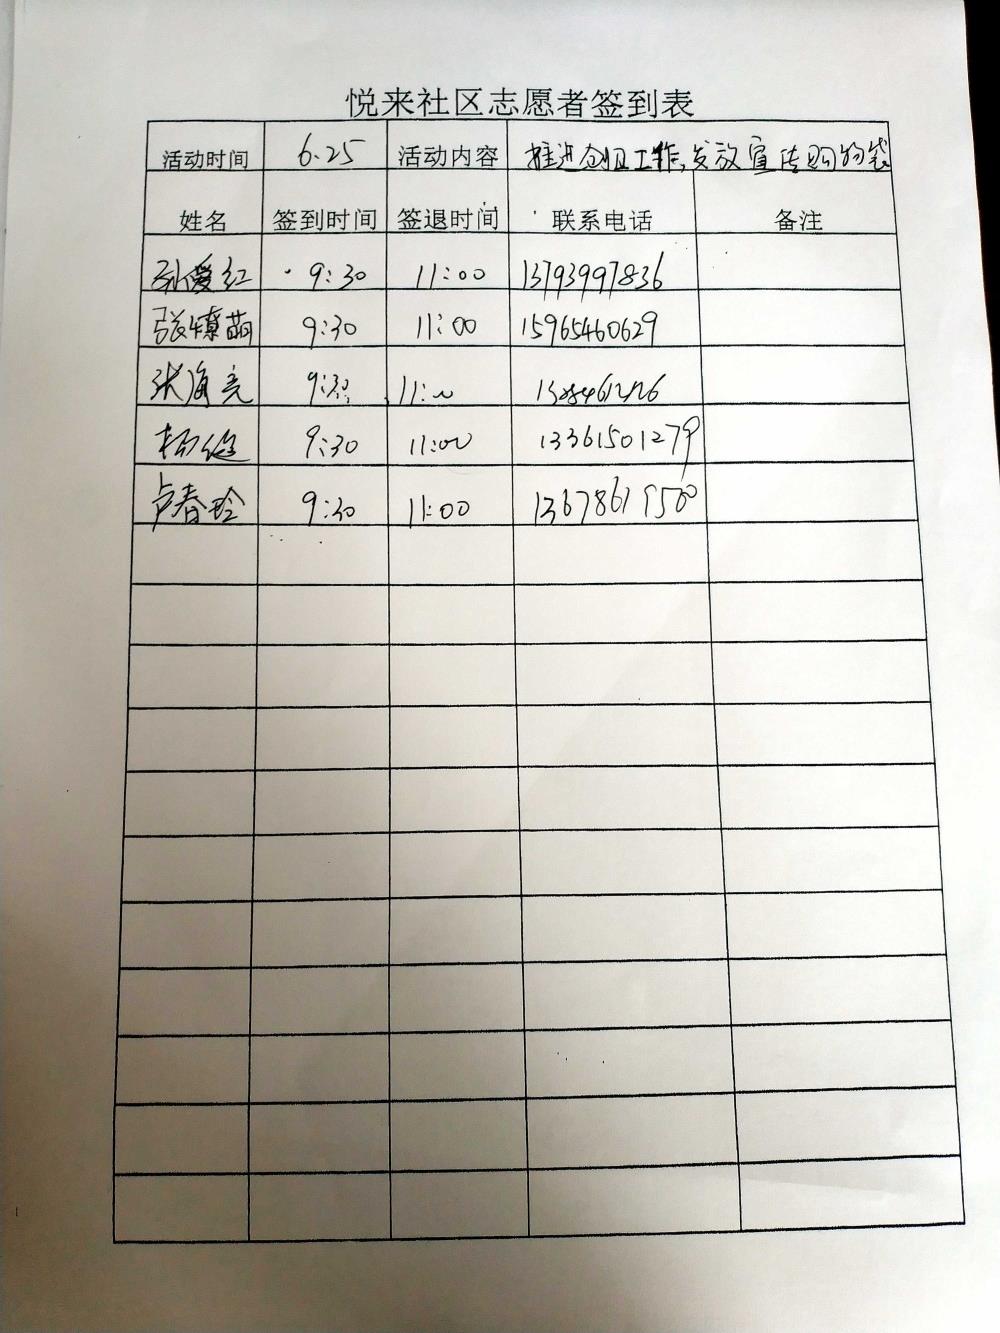 悦来社区志愿者签到表
活动时间 6.25 活动内容 推进创卫工作,发放宣传购物袋
姓名 签到时间 签退时间 联系电话 备注
孙爱红 9:30 11:00 13793997836
张 萌 9:30 11:00 15965460629
张海亮 9:30 11:00
杨 9:30 11:00 13361501279
卢春玲 9:30 11:00 13678619500